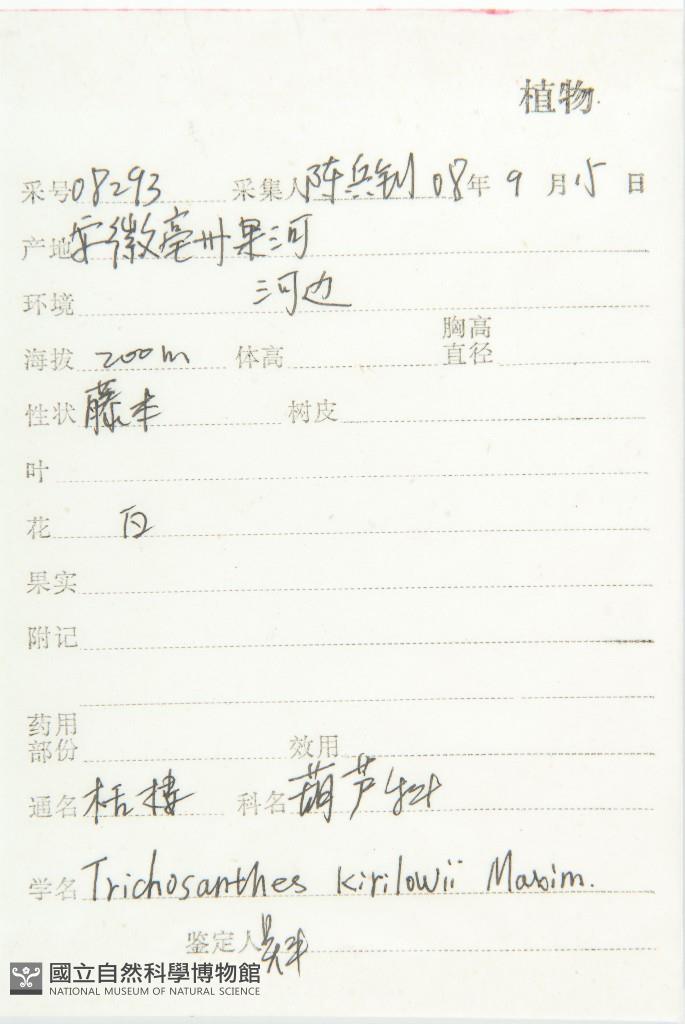 植物
采号08293 采集人陈兵钊 08年9月15日
产地安徽亳州果河
环境 河边
海拔 200m 体高 胸高直径
性状 藤本 树皮
叶
花 白
果实
附记
药用部份 效用
通名 栝楼 科名 葫芦科
学名 Trichosanthes kirilowii Maxim.
鉴定人
國立自然科學博物館
NATIONAL MUSEUM OF NATURAL SCIENCE